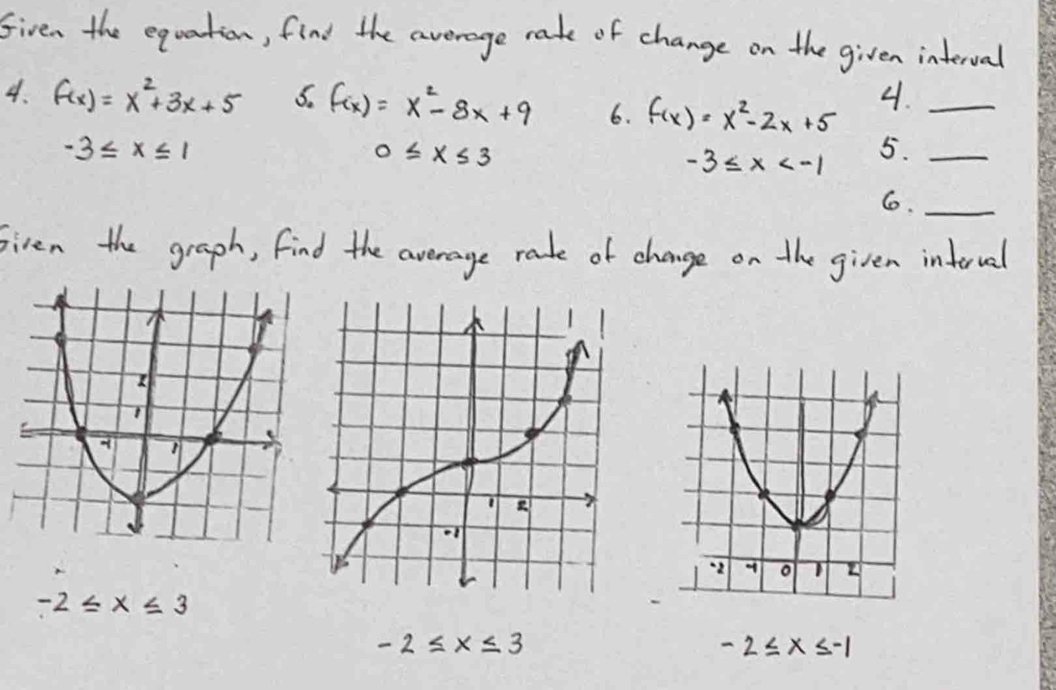 Given the equation, find the average rate of change on the given interval
4. f(x) = x²+3x+5 5. f(x) = x²-8x+9 6. f(x) = x²-2x+5 4. ___
-3 ≤ x ≤ 1 0 ≤ x ≤ 3 -3 ≤ x < -1 5. ___
6. ___
Given the graph, find the average rate of change on the given interval
2
1
-1 1
1 2
-1
-2 -1 0 1 2
-2 ≤ x ≤ 3
-2 ≤ x ≤ 3 -2 ≤ x ≤ -1